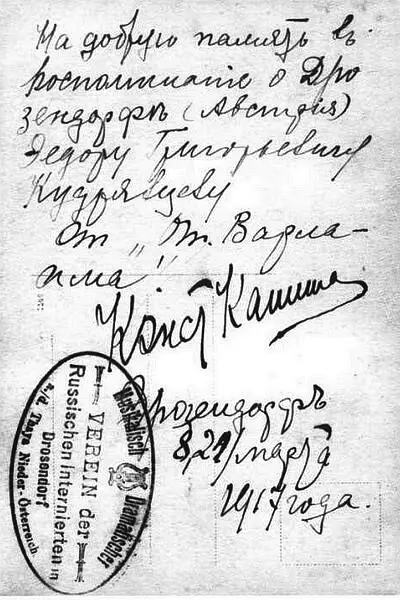 На добрую память въ
воспоминанiе о Дро
зендорфѣ (Австрiя)
Федору Григорьевичу
Кудрявцеву
От „Ѳт. Варла-
има"!
Конст Каши
Дрозендорфъ
8/21/марта
1917 года.
Musikalisch Dramatischer
VEREIN der
Russischen Internierten in
Drosendorf
a./d. Thaya Nieder-Österreich.